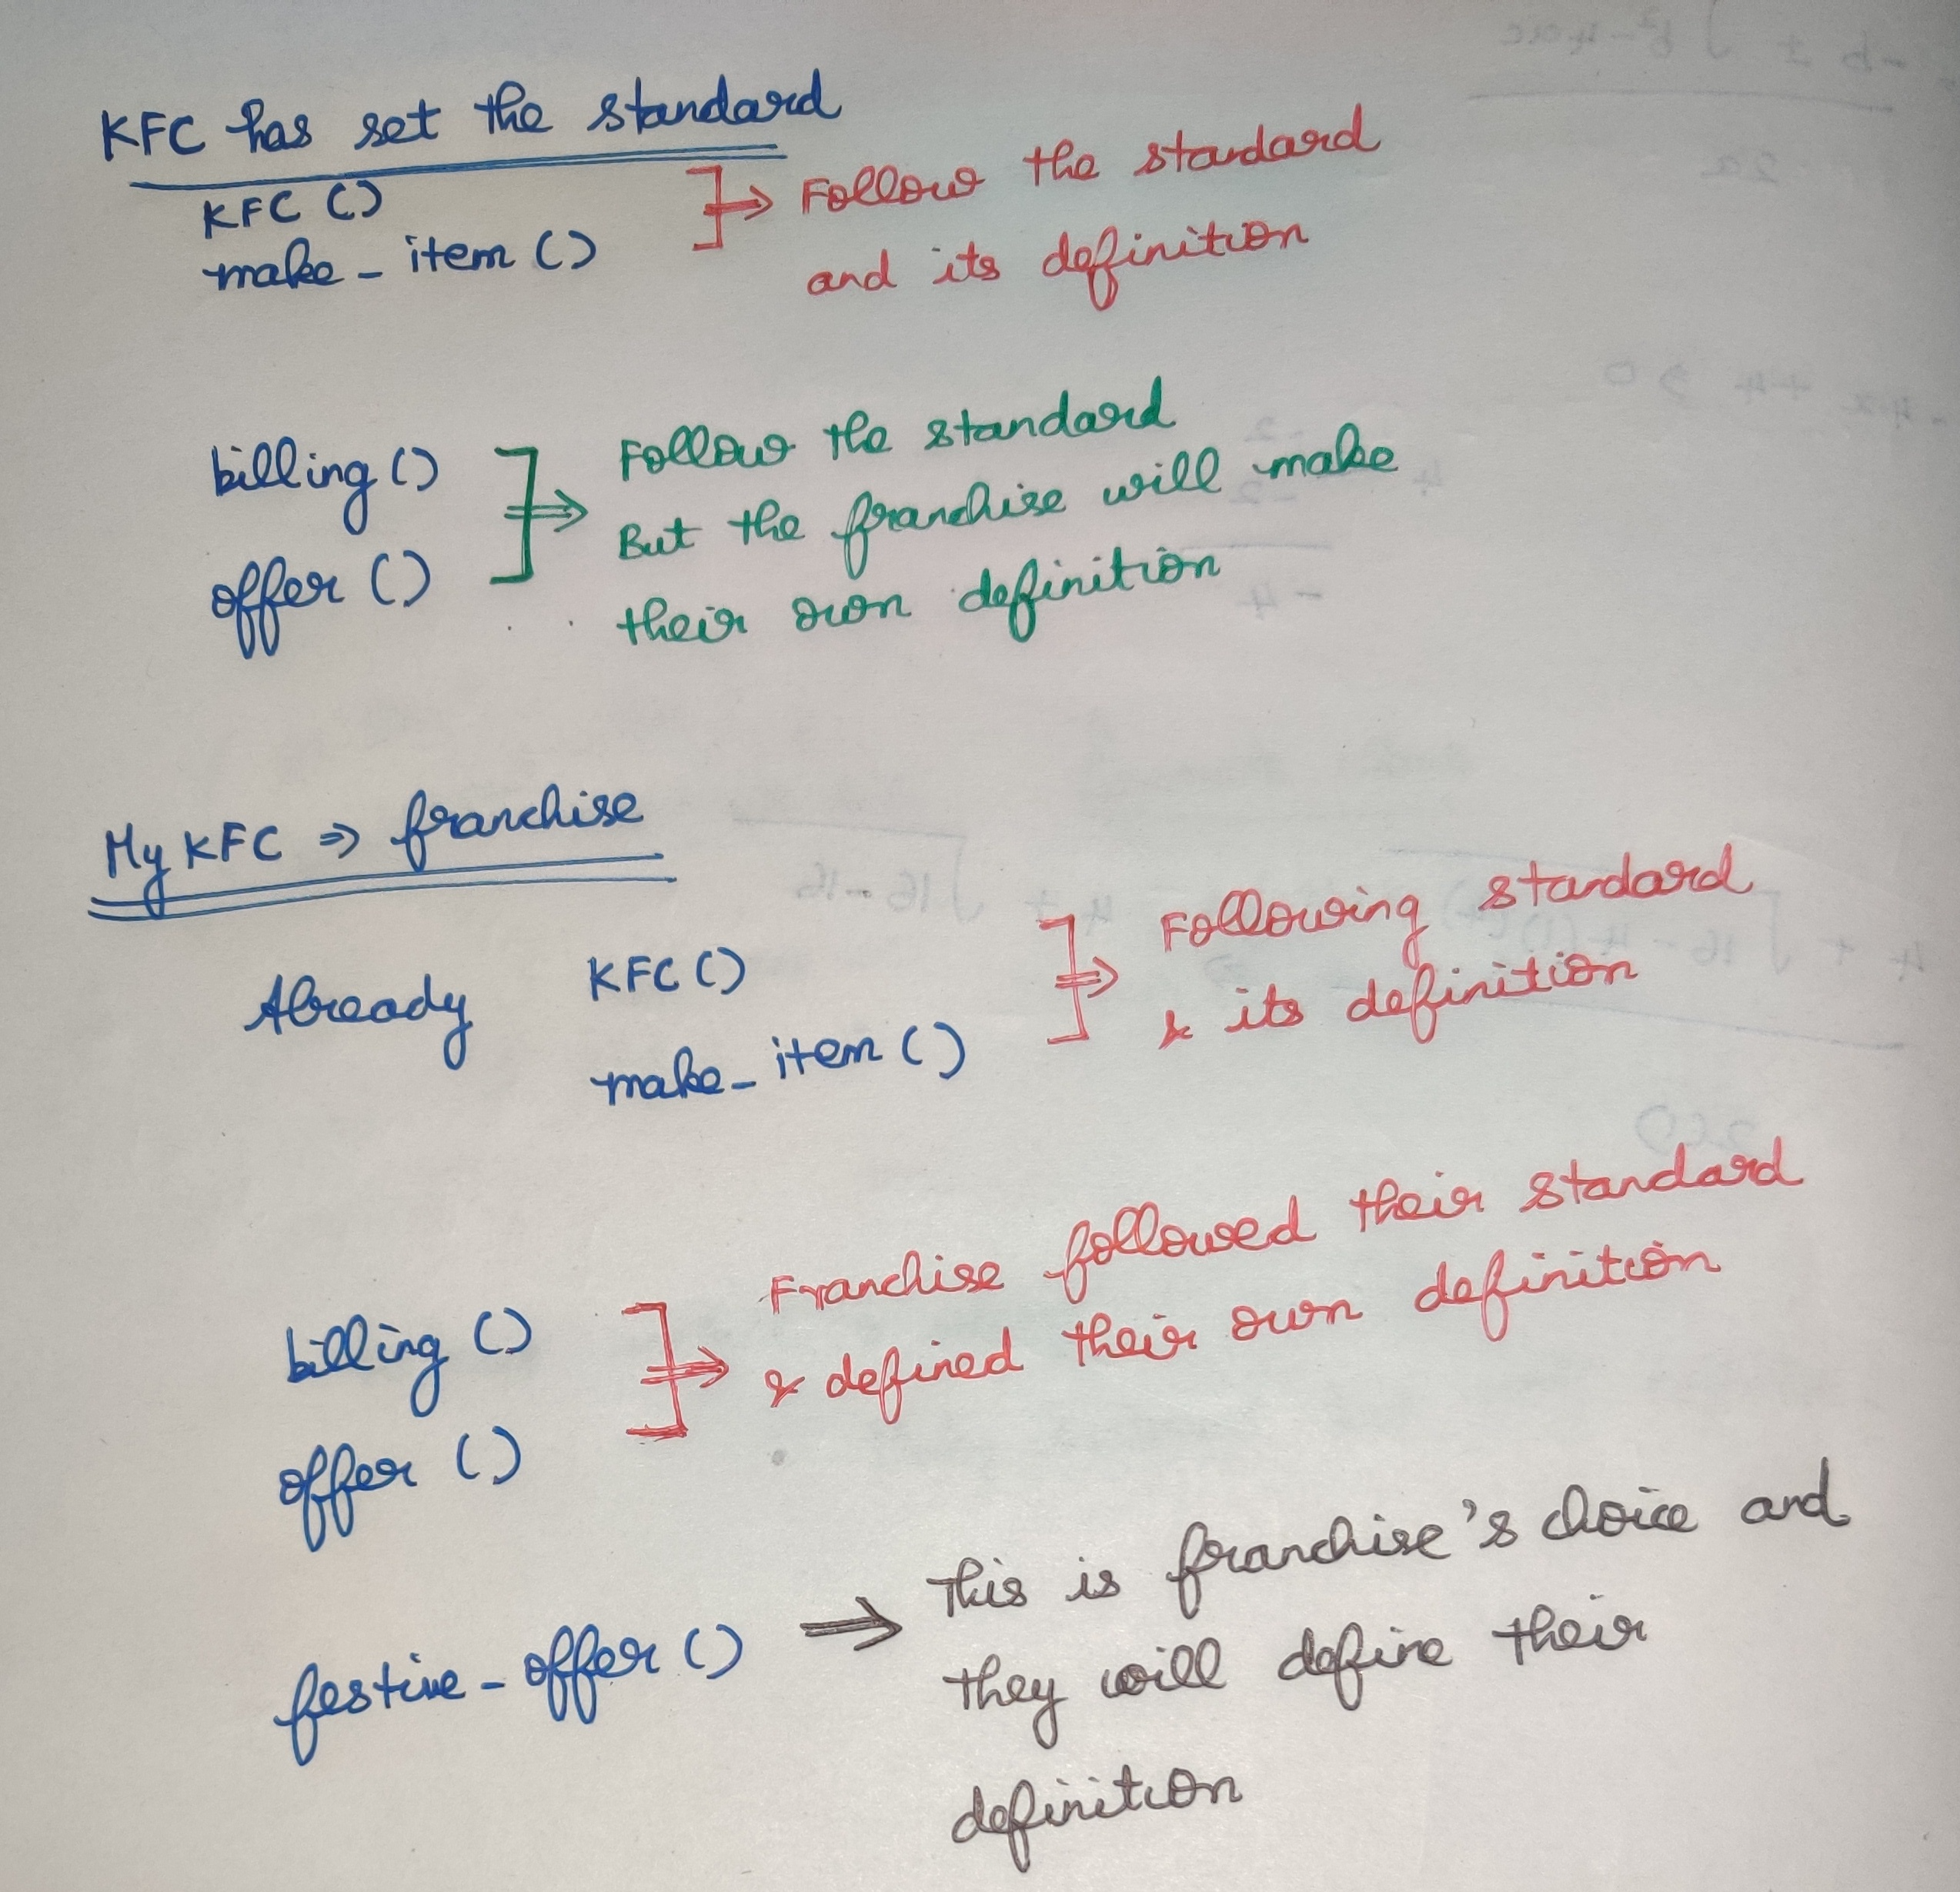 KFC has set the standard
KFC ()
make_item ()
Follow the standard
and its definition
billing ()
offer ()
Follow the standard
But the franchise will make
their own definition
My KFC ⇒ franchise
Already KFC ()
make_item ()
Following standard
& its definition
billing ()
offer ()
Franchise followed their standard
& defined their own definition
festive-offer () ⇒ This is franchise's choice and
they will define their
definition